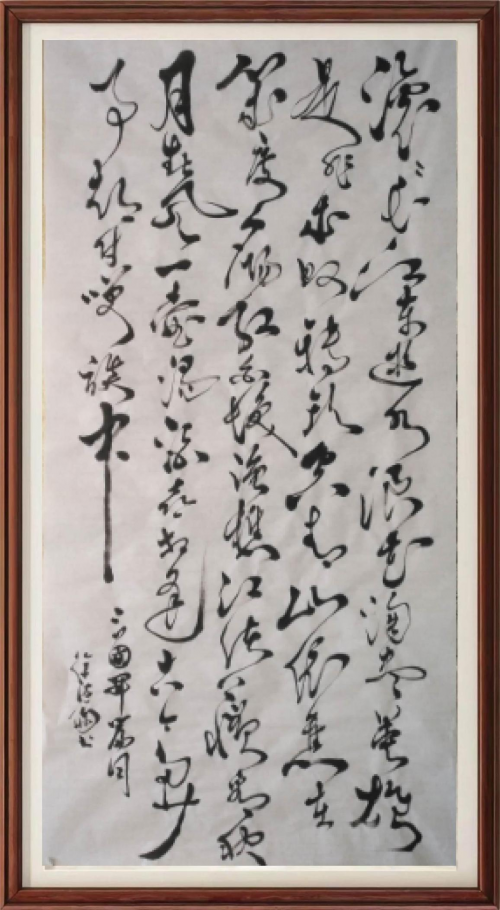 滚滚长江东逝水浪花淘尽英雄
是非成败转头空青山依旧在
几度夕阳红白发渔樵江渚上惯看秋
月春风一壶浊酒喜相逢古今多少
事都付笑谈中
三国